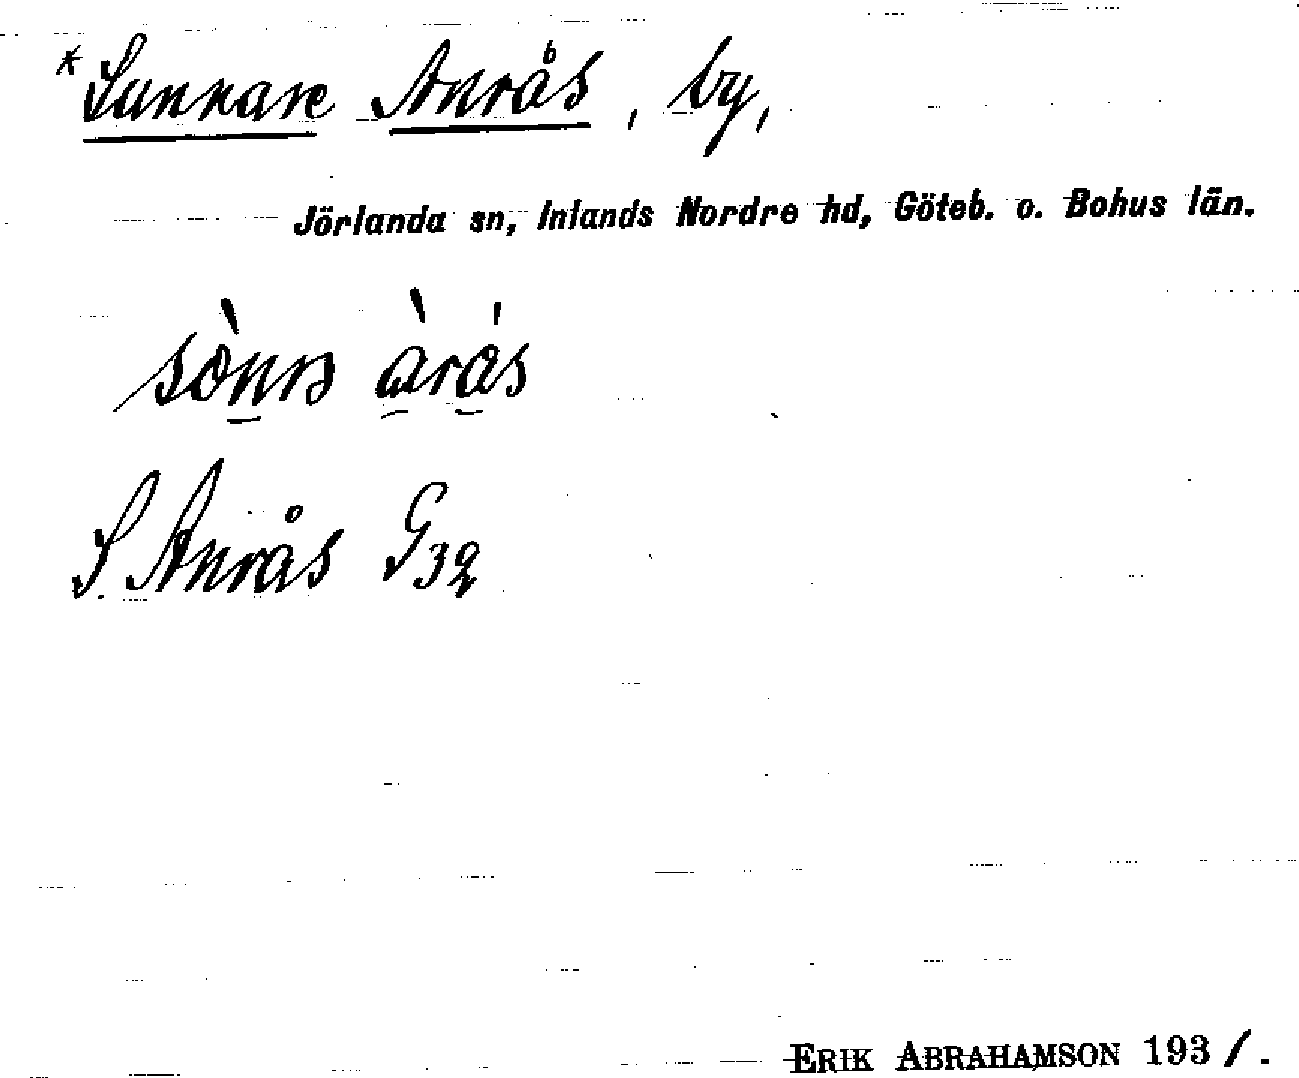 * Sunnare Anrås, by,
Jörlanda sn, Inlands Nordre hd, Göteb. o. Bohus län.
S. Anrås G32
ERIK ABRAHAMSON 1931.